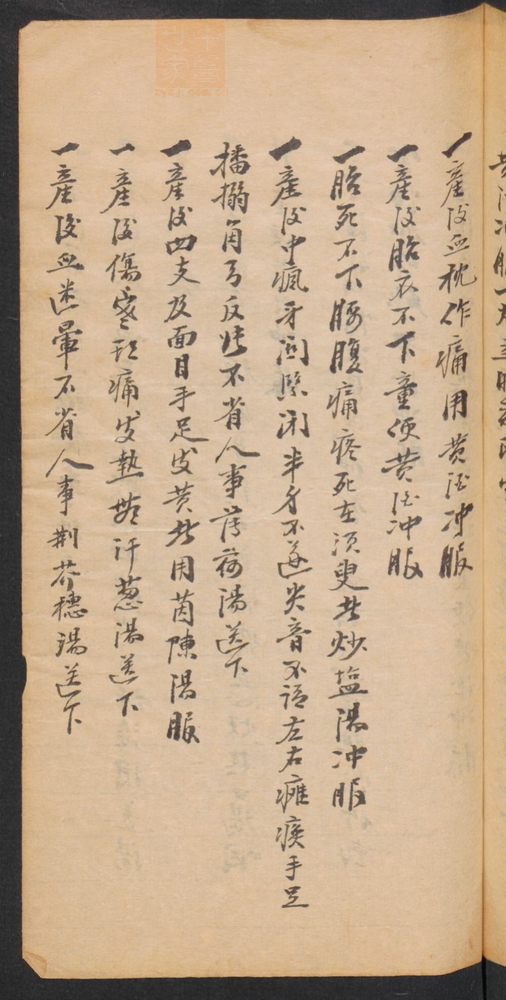 一產後血枕作痛用黄酒冲服
一產後胎衣不下童便黄酒冲服
一胎死不下腰腹痛疼死在須臾者炒塩湯冲服
一產後中瘋牙関緊闭半身不遂失音不语左右瘫痪手足
搐搦角弓反張不省人事薄荷湯送下
一產後四支及面目手足发黄者用茵陳湯服
一產後傷寒头痛发熱無汗葱湯送下
一產後血迷暈不省人事荆芥穗湯送下